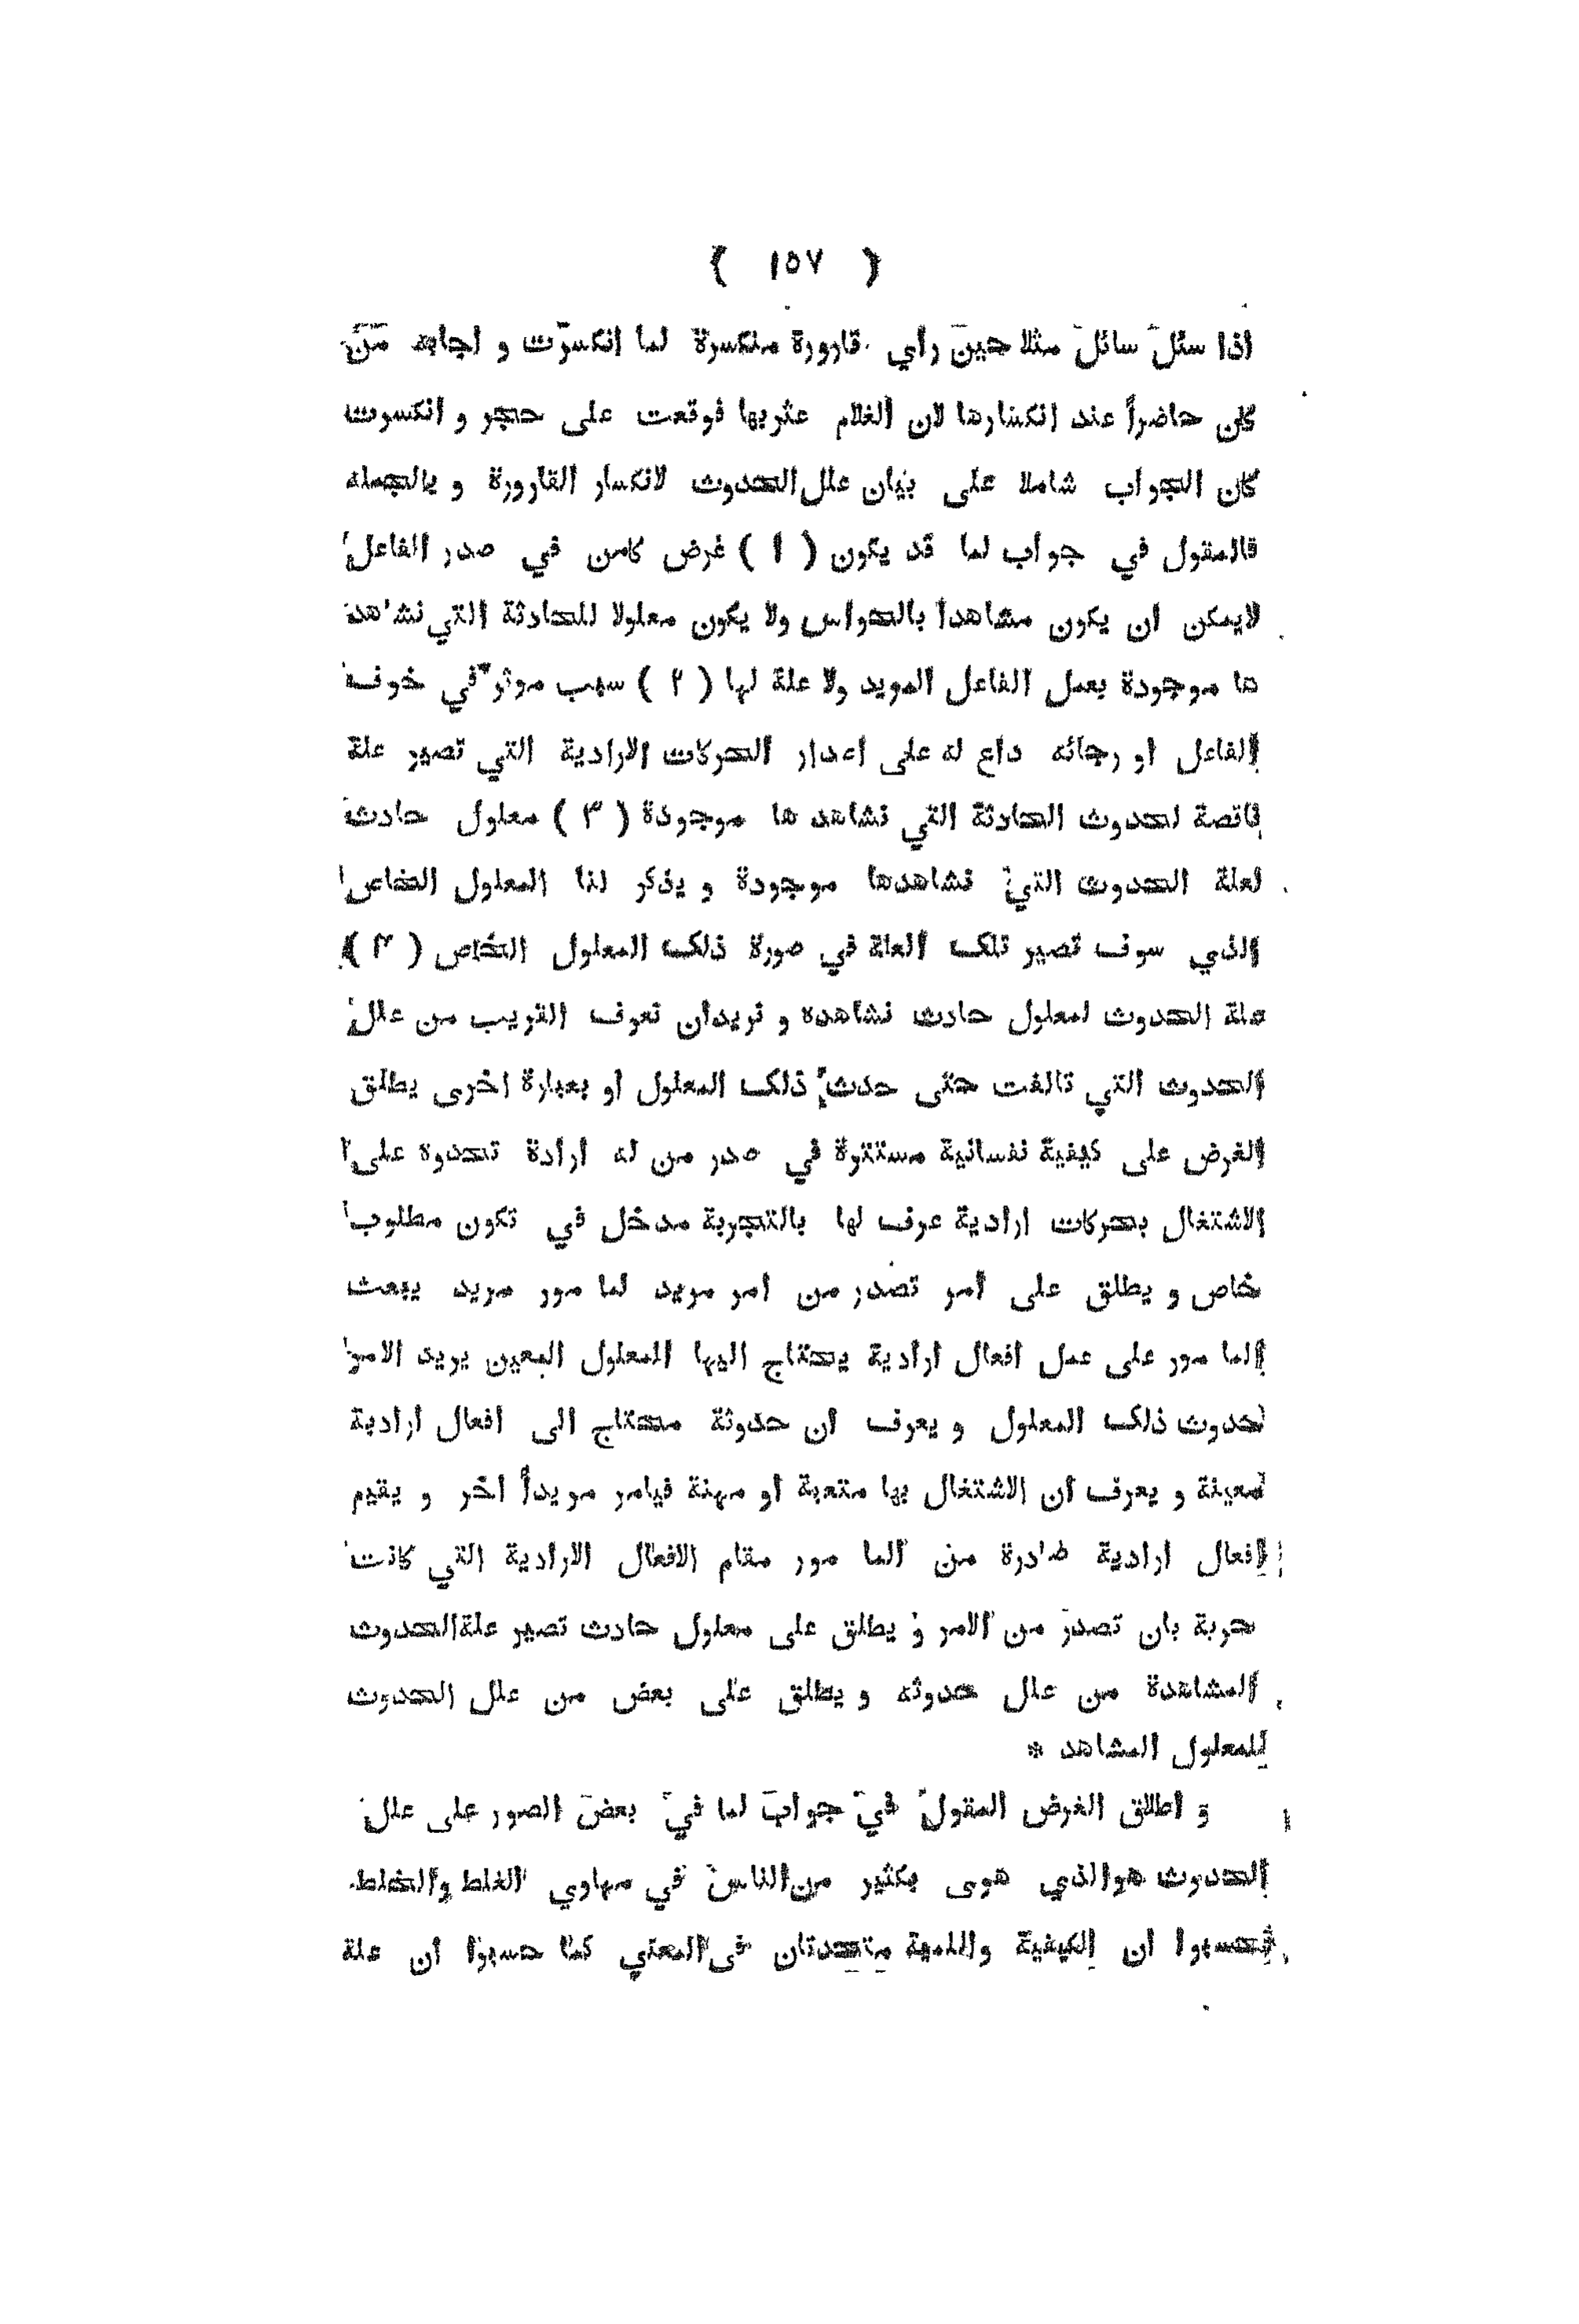 ( ١٥٧ )
اذا سئل سائل مثلا حين رأي قارورة منكسرة لما انكسرت و اجابه من
كان حاضراً عند انكسارها لان الغلام عثربها فوقعت على حجر و انكسرت
كان الجواب شاملا على بيان علل الحدوث لانكسار القارورة و بالجملة
فالمقول في جواب لما قد يكون ( ١ ) غرض كامن في صدر الفاعل
لايمكن ان يكون مشاهدا بالحواس ولا يكون معلولا للحادثة التي نشاهد
ها موجودة بعمل الفاعل المريد ولا علة لها ( ٢ ) سبب موثر في خوف
الفاعل او رجائه داع له على اعدار الحركات الارادية التي تصير علة
ناقصة لحدوث الحادثة التي نشاهد ها موجودة ( ٣ ) معلول حادث
لعلة الحدوث التي نشاهدها موجودة و يذكر لنا المعلول الخاص
الذي سوف تصير تلك العلة في صورة ذلك المعلول الخاص ( ٤ )
علة الحدوث لمعلول حادث نشاهده و نريدان نعرف القريب من علل
الحدوث التي تالفت حتى حدث ذلك المعلول او بعبارة اخرى يطلق
الغرض على كيفية نفسانية مستترة في صدر من له ارادة تحدوه على
الاشتغال بحركات ارادية عرف لها بالتجربة مدخل في تكون مطلوب
خاص و يطلق على امر تصدر من امر مريد لما مور مريد يبعث
الما مور على عمل افعال ارادية يحتاج اليها المعلول المعين يريد الامر
حدوث ذلك المعلول و يعرف ان حدوثة محتاج الى افعال ارادية
معينة و يعرف ان الاشتغال بها متعبة او مهنة فيامر مريداً اخر و يقيم
افعال ارادية صادرة من الما مور مقام الافعال الارادية التي كانت
حرية بان تصدر من الامر و يطلق على معلول حادث تصير علةالحدوث
المشاهدة من علل حدوثه و يطلق على بعض من علل الحدوث
للمعلول المشاهد *
و اطلاق الغرض المقول في جواب لما في بعض الصور على علل
الحدوث هوالذي هوى بكثير من الناس في مهاوي الغلط والخلط
فحسبوا ان الكيفية واللمية متحدتان في المعني كما حسبوا ان علة